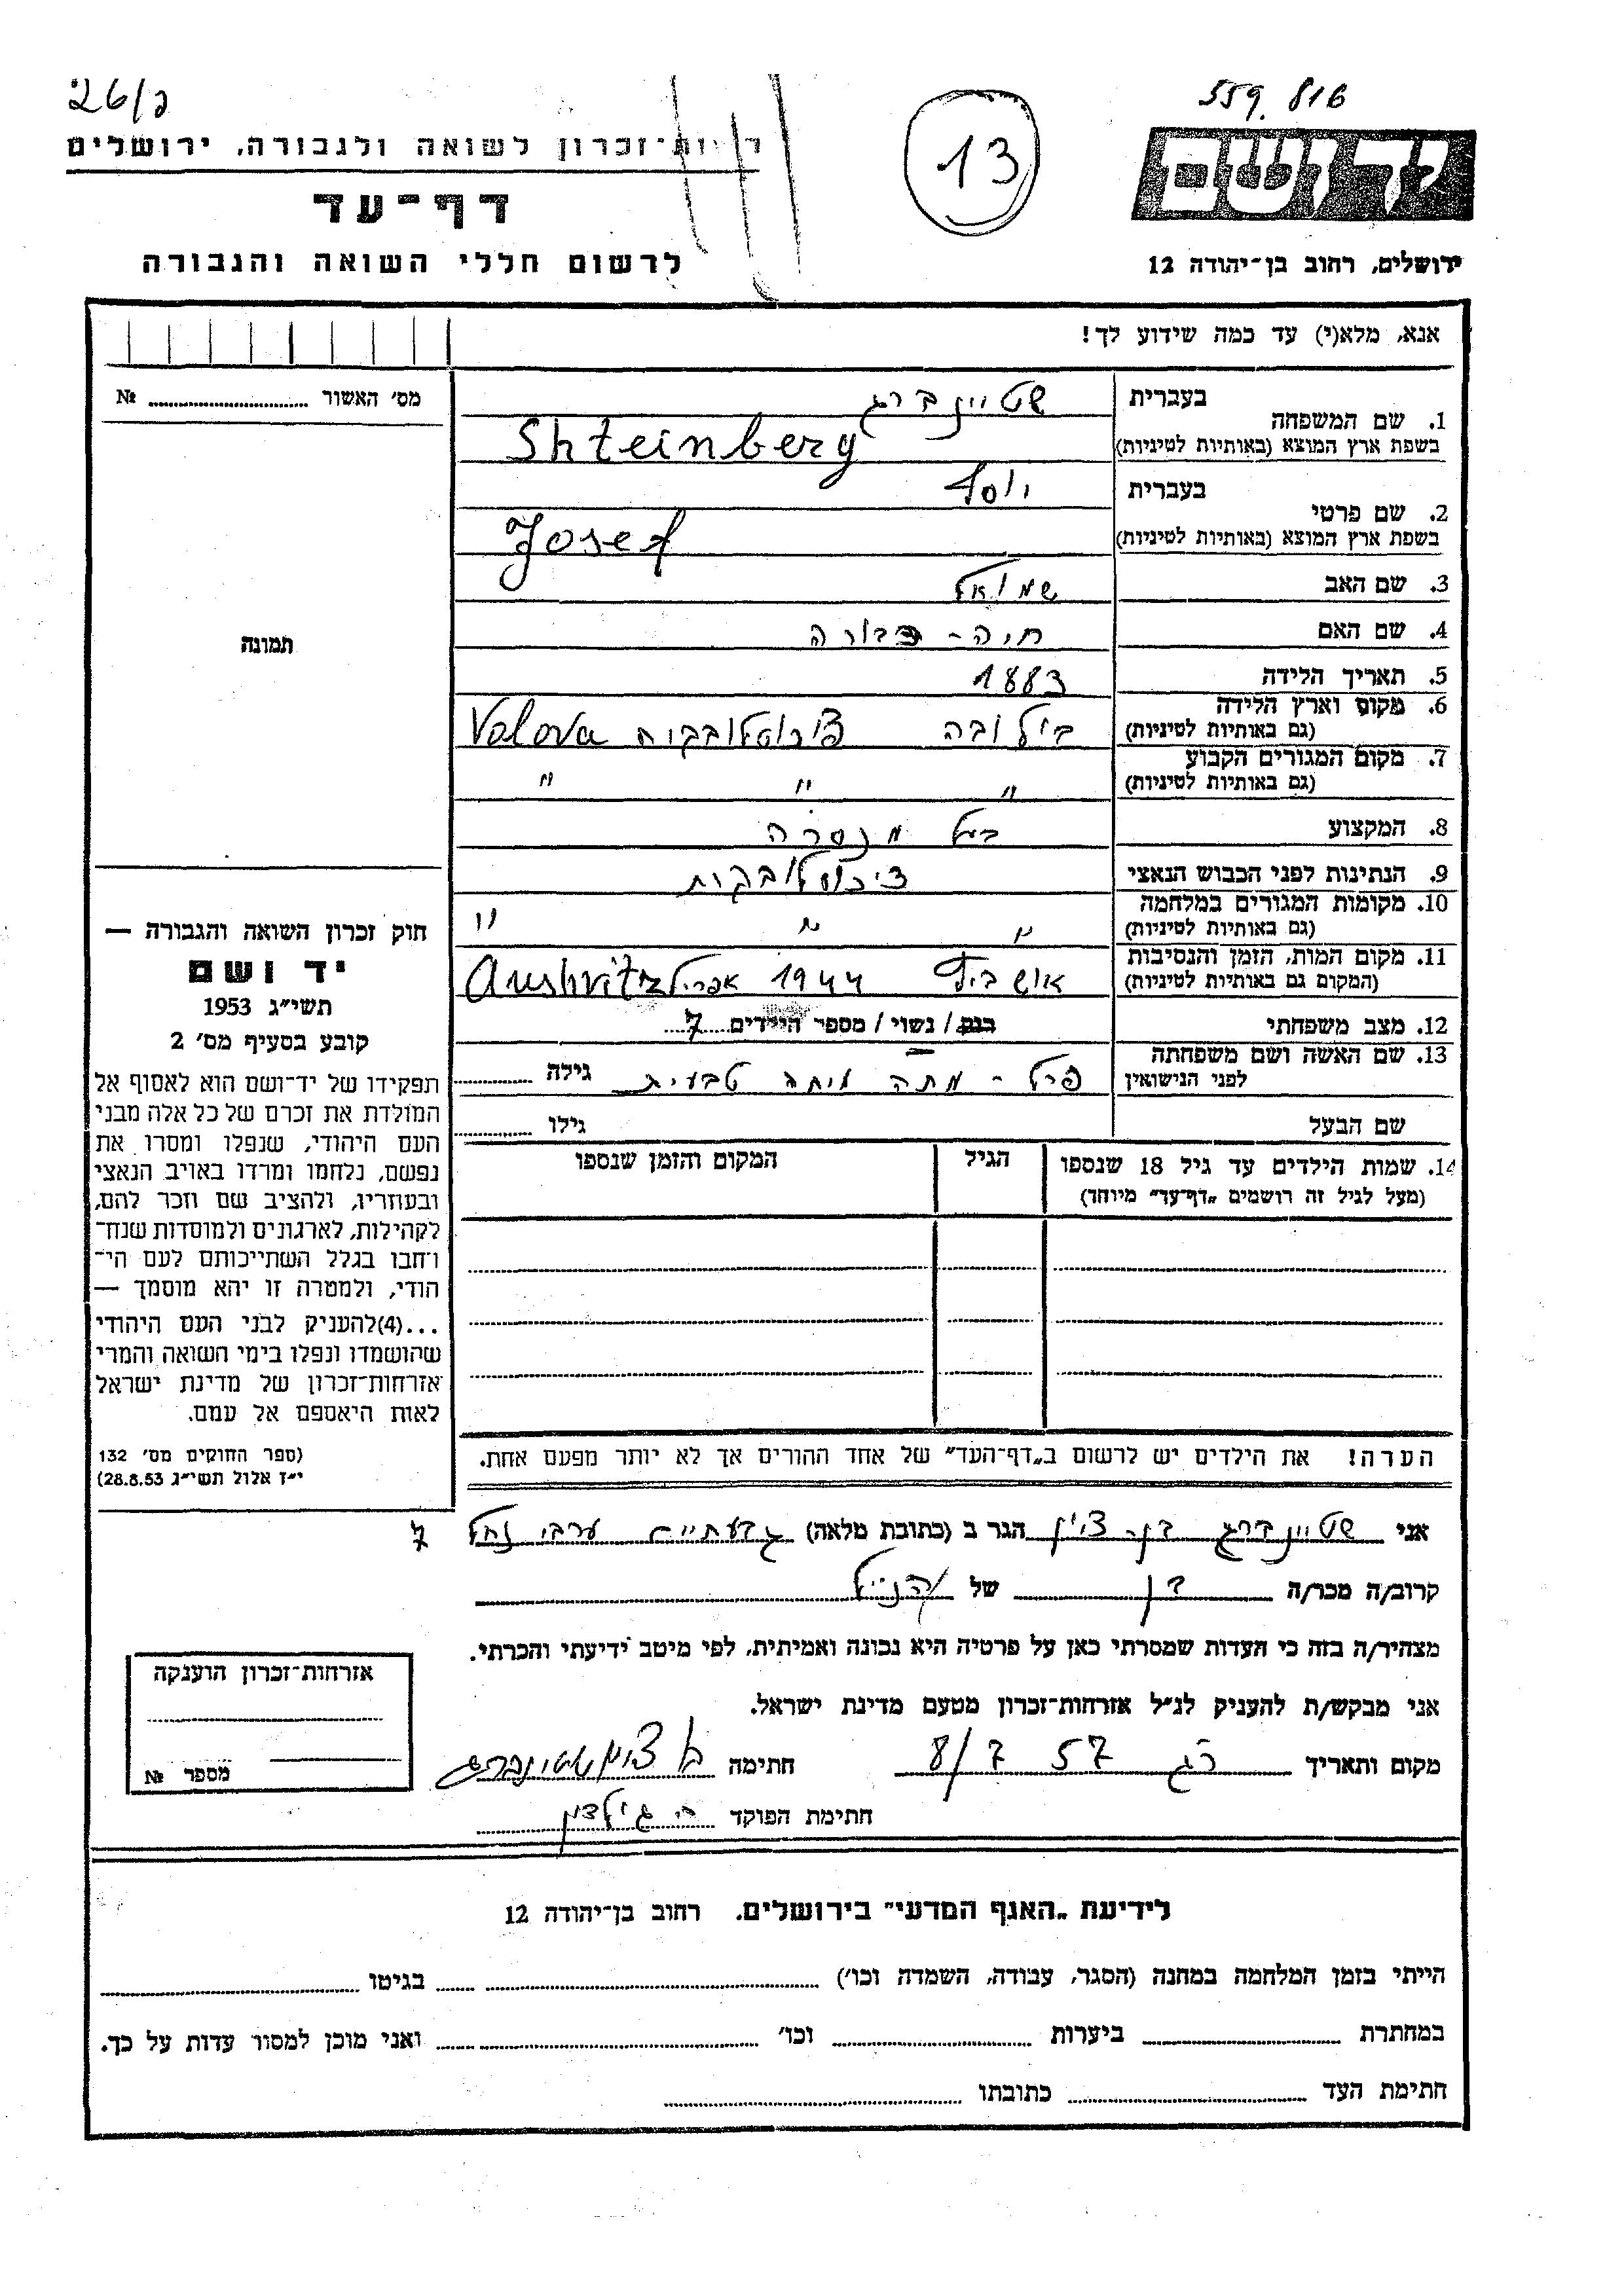 559.816
26/כ
13
יד ושם
רשות־זכרון לשואה ולגבורה, ירושלים
דף־עד
לרשום חללי השואה והגבורה
ירושלים, רחוב בן־יהודה 12
אנא, מלא(י) עד כמה שידוע לך!
מס׳ האשור ........ №
תמונה
בעברית שטיינברג
1. שם המשפחה
בשפת ארץ המוצא (באותיות לטיניות) Shteinberg
בעברית יוסף
2. שם פרטי
בשפת ארץ המוצא (באותיות לטיניות) Josef
3. שם האב שמואל
4. שם האם חיה - דבורה
5. תאריך הלידה 1883
6. מקום וארץ הלידה
(גם באותיות לטיניות) בילובה ציכוסלובקיה Valova
7. מקום המגורים הקבוע
(גם באותיות לטיניות) " " "
8. המקצוע בעל מנסרה
9. הנתינות לפני הכבוש הנאצי ציכוסלובקית
10. מקומות המגורים במלחמה
(גם באותיות לטיניות) " " "
11. מקום המות, הזמן והנסיבות
(המקום גם באותיות לטיניות) אושביץ 1944 אפריל Aushvitz
12. מצב משפחתי רווק / נשוי / מספר הילדים 7
13. שם האשה ושם משפחתה
לפני הנישואין פרל - מתה מיתה טבעית גילה ........
שם הבעל גילו ........
14. שמות הילדים עד גיל 18 שנספו הגיל המקום והזמן שנספו
(מעל לגיל זה רושמים „דף־עד” מיוחד)
הערה! את הילדים יש לרשום ב„דף־העד” של אחד ההורים אך לא יותר מפעם אחת.
חוק זכרון השואה והגבורה —
יד ושם
תשי״ג 1953
קובע בסעיף מס׳ 2
תפקידו של יד־ושם הוא לאסוף אל
המולדת את זכרם של כל אלה מבני
העם היהודי, שנפלו ומסרו את
נפשם, נלחמו ומרדו באויב הנאצי
ובעוזריו, ולהציב שם וזכר להם,
לקהילות, לארגונים ולמוסדות שנח־
רחבו בגלל השתייכותם לעם הי־
הודי, ולמטרה זו יהא מוסמך —
...(4)להעניק לבני העם היהודי
שהושמדו ונפלו בימי השואה והמרי
אזרחות־זכרון של מדינת ישראל
לאות היאספם אל עמם.
(ספר החוקים מס׳ 132
י״ז אלול תשי״ג 28.8.53)
אני שטיינברג בן־ציון הגר ב (כתובת מלאה) גבעתיים ערבי נחל 7
קרוב/ה מכר/ה בן של הנ״ל
מצהיר/ה בזה כי העדות שמסרתי כאן על פרטיה היא נכונה ואמיתית, לפי מיטב ידיעתי והכרתי.
אני מבקש/ת להעניק לנ״ל אזרחות־זכרון מטעם מדינת ישראל.
מקום ותאריך רג 8/7 57 חתימה בן ציון שטינברג
חתימת הפוקד
אזרחות־זכרון הוענקה
מספר №
לידיעת „האגף המדעי” בירושלים. רחוב בן־יהודה 12
הייתי בזמן המלחמה במחנה (הסגר, עבודה, השמדה וכו׳) ........ בגיטו ........
במחתרת ........ ביערות ........ וכו׳ ........ ואני מוכן למסור עדות על כך.
חתימת העד ........ כתובתו ........